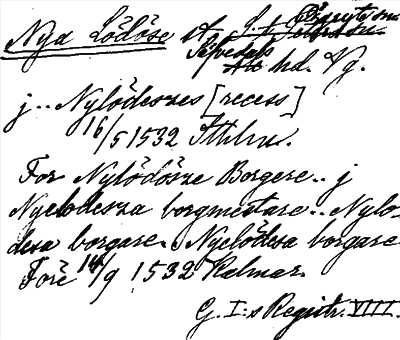 Nya Lödöse st.
Sävedals hd. Vg.
j.. Nylödeszes [recess]
16/5 1532 Sthlm.
For Nylödösze Borgere.. j
Nyelodesza borgmestare.. Nylo-
desa borgare.. Nyelödesa borgare
Före 14/9 1532 Kalmar.
G. I:s Registr. VIII.